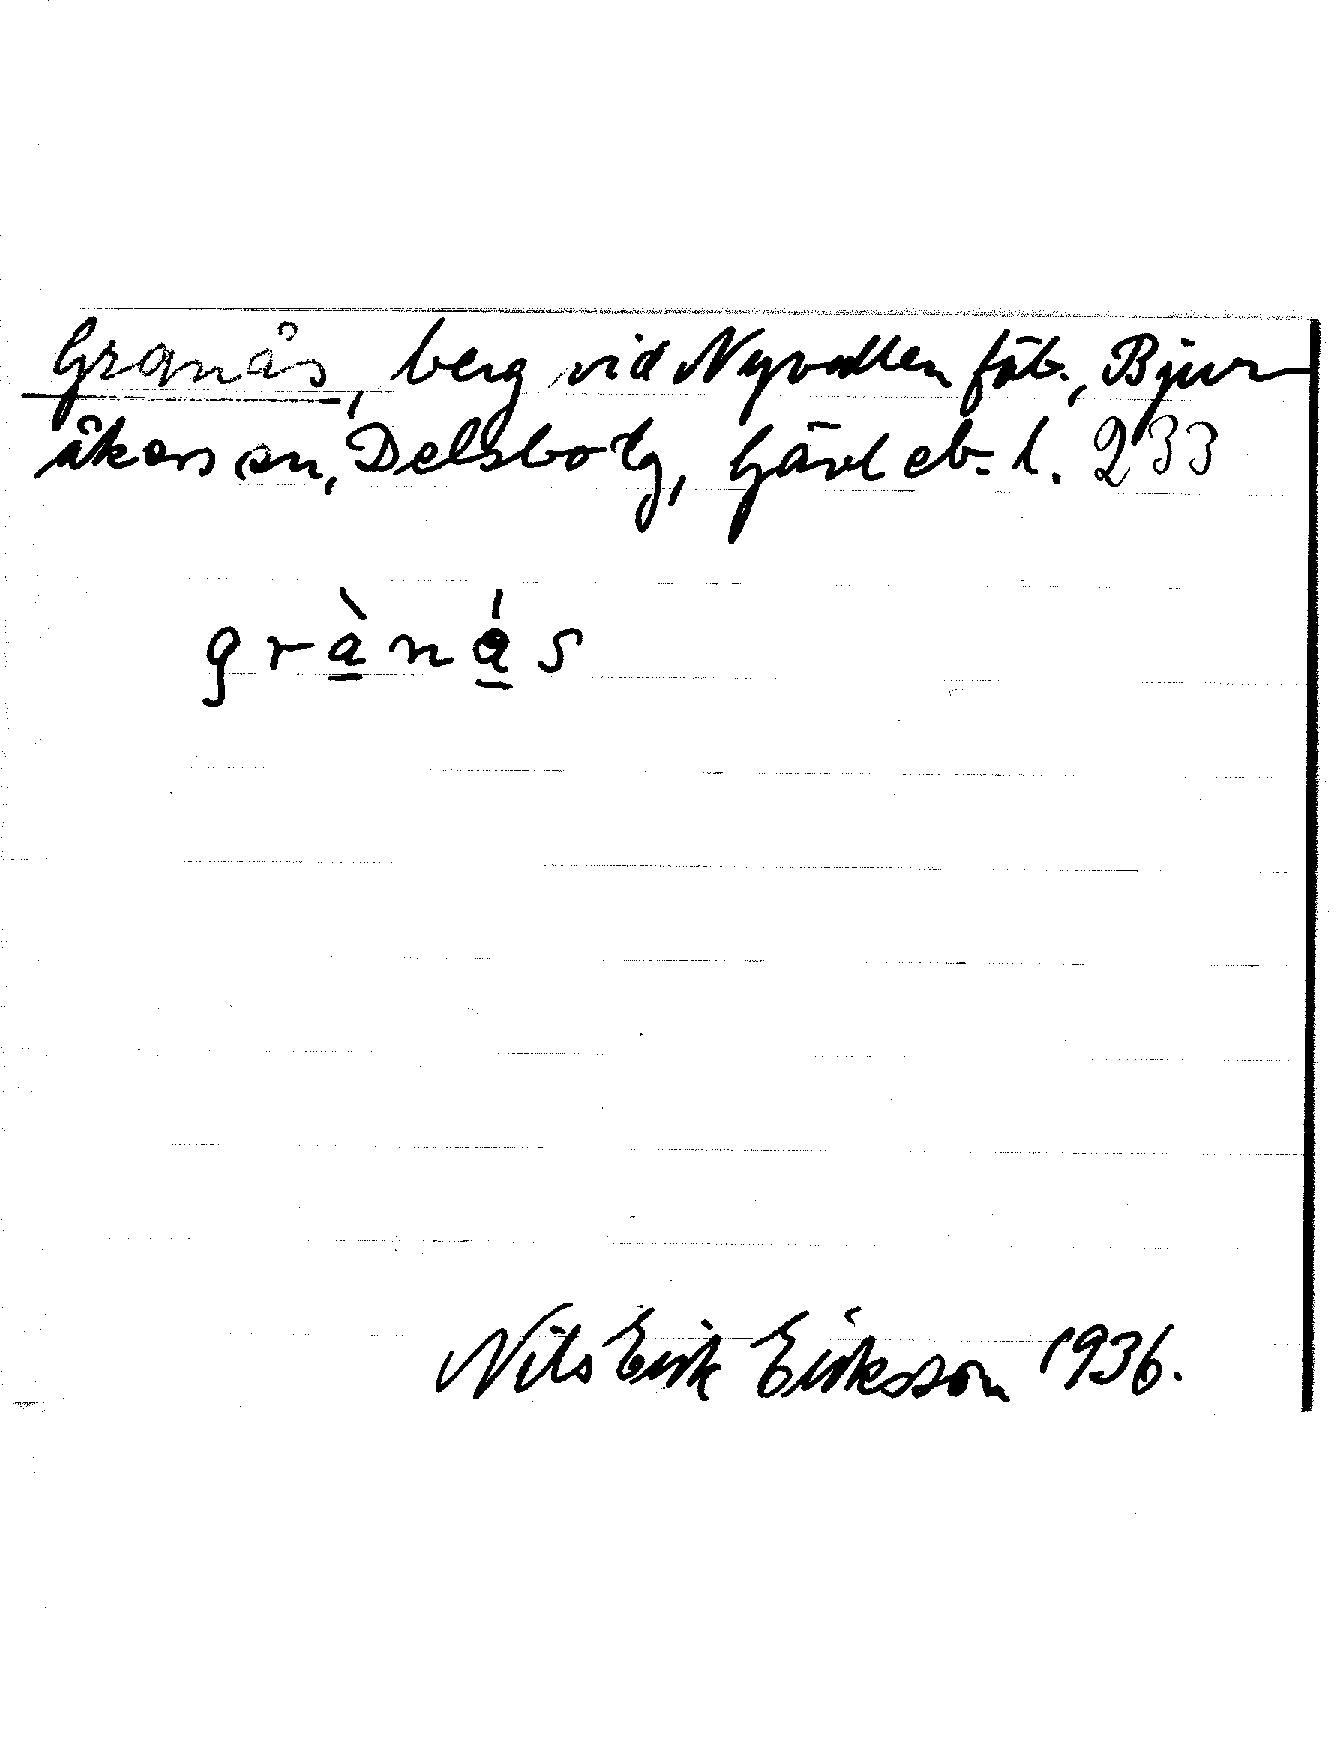 Granås, berg vid Nyvallen fäb., Bjur-
åkers sn, Delsbo tg, Gävleb. l. 233
grànás
Nils Erik Eriksson 1936.